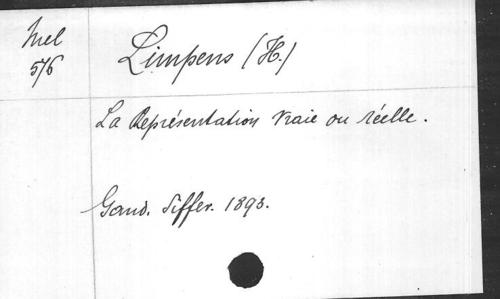 Mel
576
Limpens (H.)
La Représentation vraie ou réelle.
Gand. Siffer. 1893.